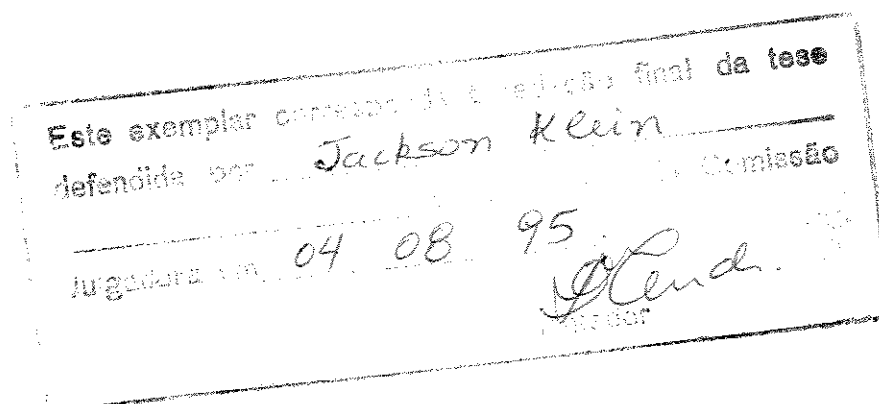 Este exemplar corresponde a redação final da tese
defendida por Jackson Klein
Comissão
Julgadora em 04 08 95.
Orientador